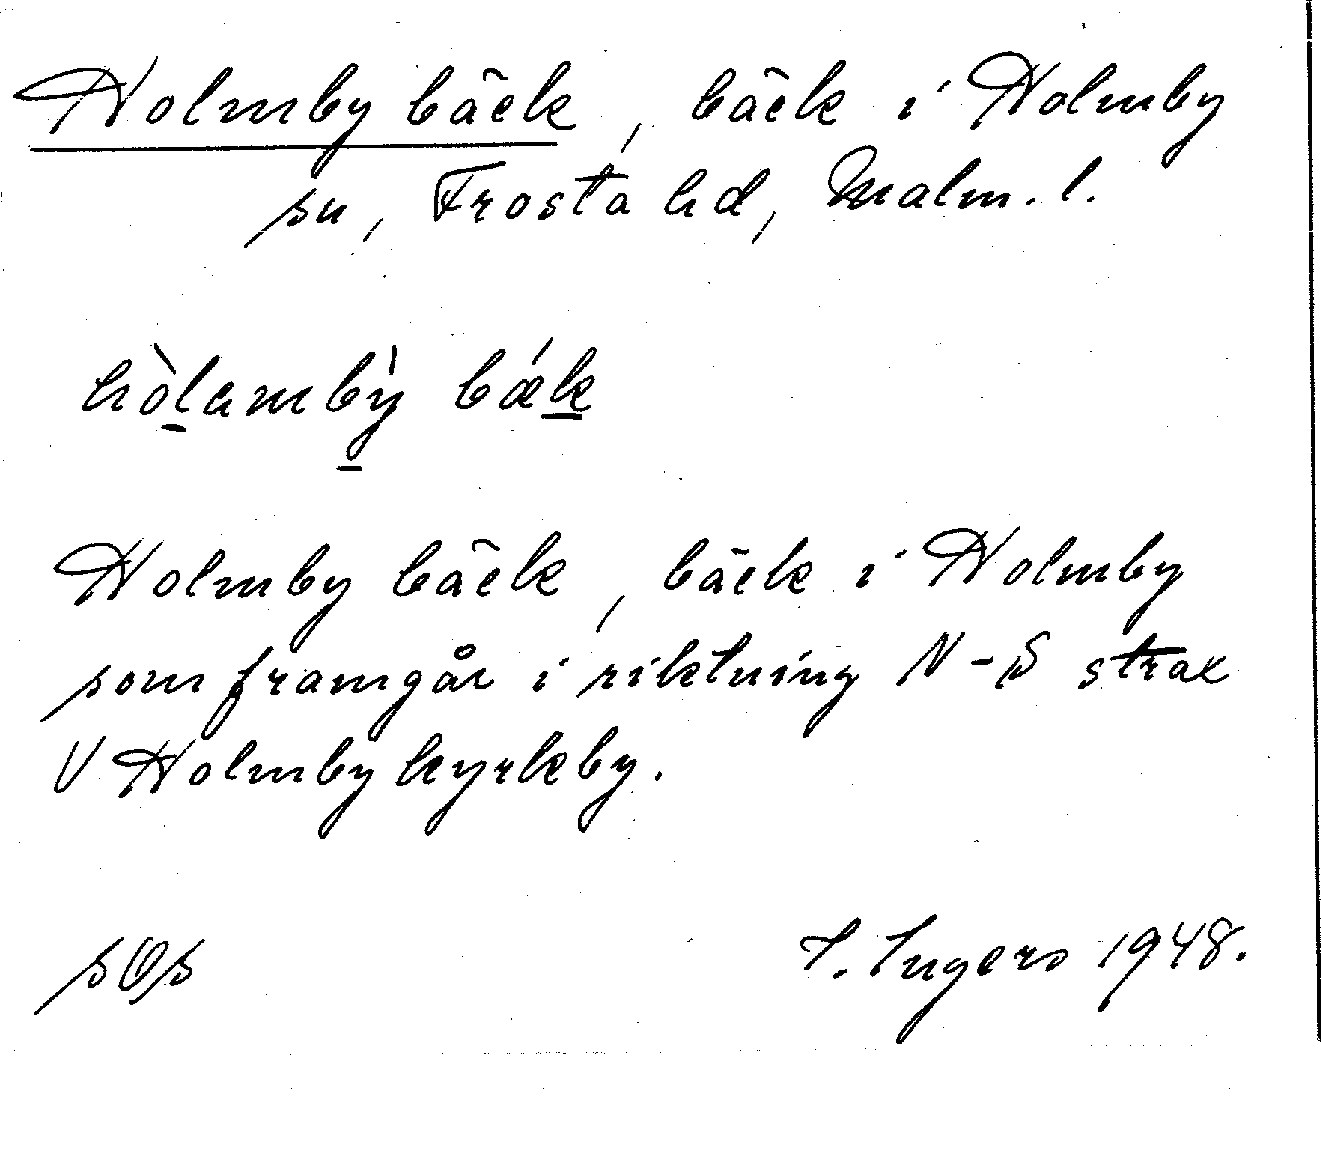 Holmby bäck, bäck i Holmby
sn, Frosta hd, Malm. l.
hòlambỳ bǽk
Holmby bäck, bäck i Holmby
som framgår i riktning N-S strax
V Holmby kyrkby.
sOs I. Ingers 1948.